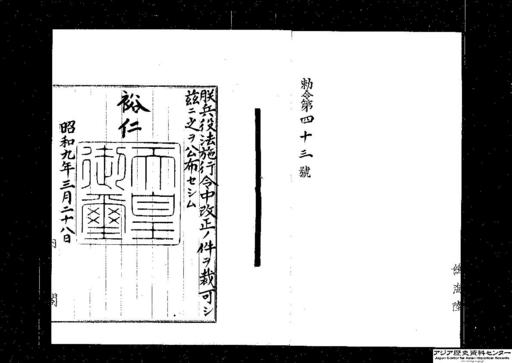 勅令第四十三號
朕兵役法施行令中改正ノ件ヲ裁可シ
茲ニ之ヲ公布セシム
裕仁
天皇
御璽
昭和九年三月二十八日
内閣
アジア歴史資料センター
Japan Center for Asian Historical Records